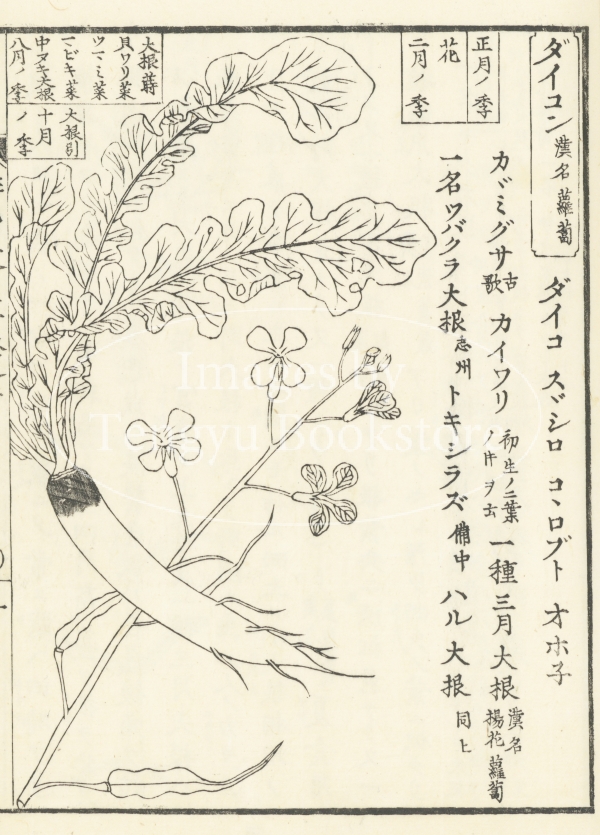 ダイコン 漢名 蘿蔔
ダイコ スヾシロ コヽロブト オホ子
正月ノ季
花
二月ノ季
カヾミグサ 古歌 カイワリ 初生ノ二葉ノ時ヲ云 一種 三月大根 漢名 楊花蘿蔔
一名ツバクラ大根 志州 トキシラズ 備中 ハル大根 同上
大根蒔
貝ワリ菜
ツマミ菜
マビキ菜
中ヌキ大根
八月ノ季
大根引
十月ノ季
Images by
Tengyu Bookstore